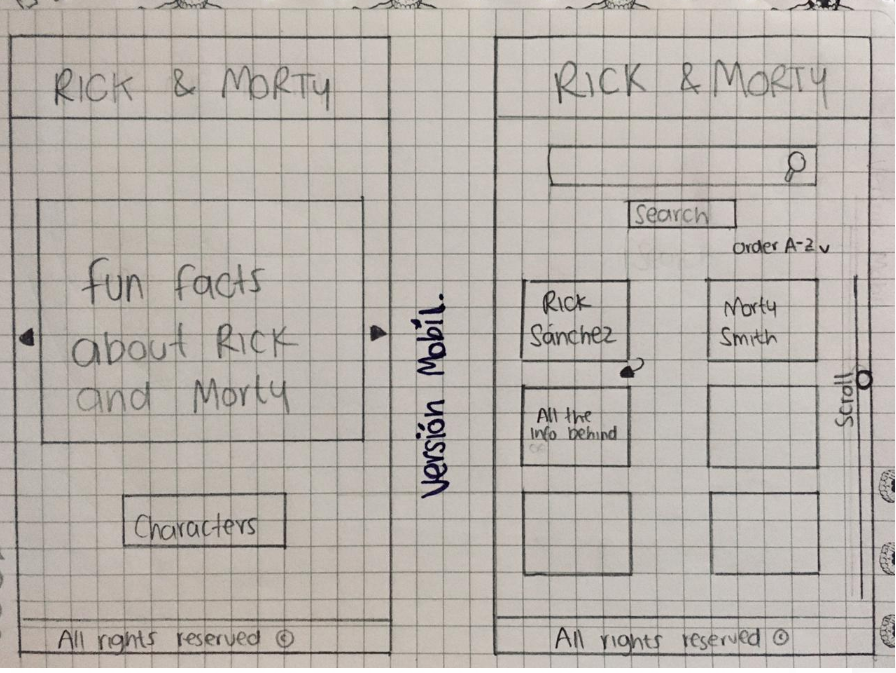 RICK & MORTY
fun facts
about RICK
and Morty
Characters
All rights reserved ©
Versión Mobil.
RICK & MORTY
Search
order A-Z v
Rick
Sánchez
Morty
Smith
All the
info behind
Scroll
All rights reserved ©